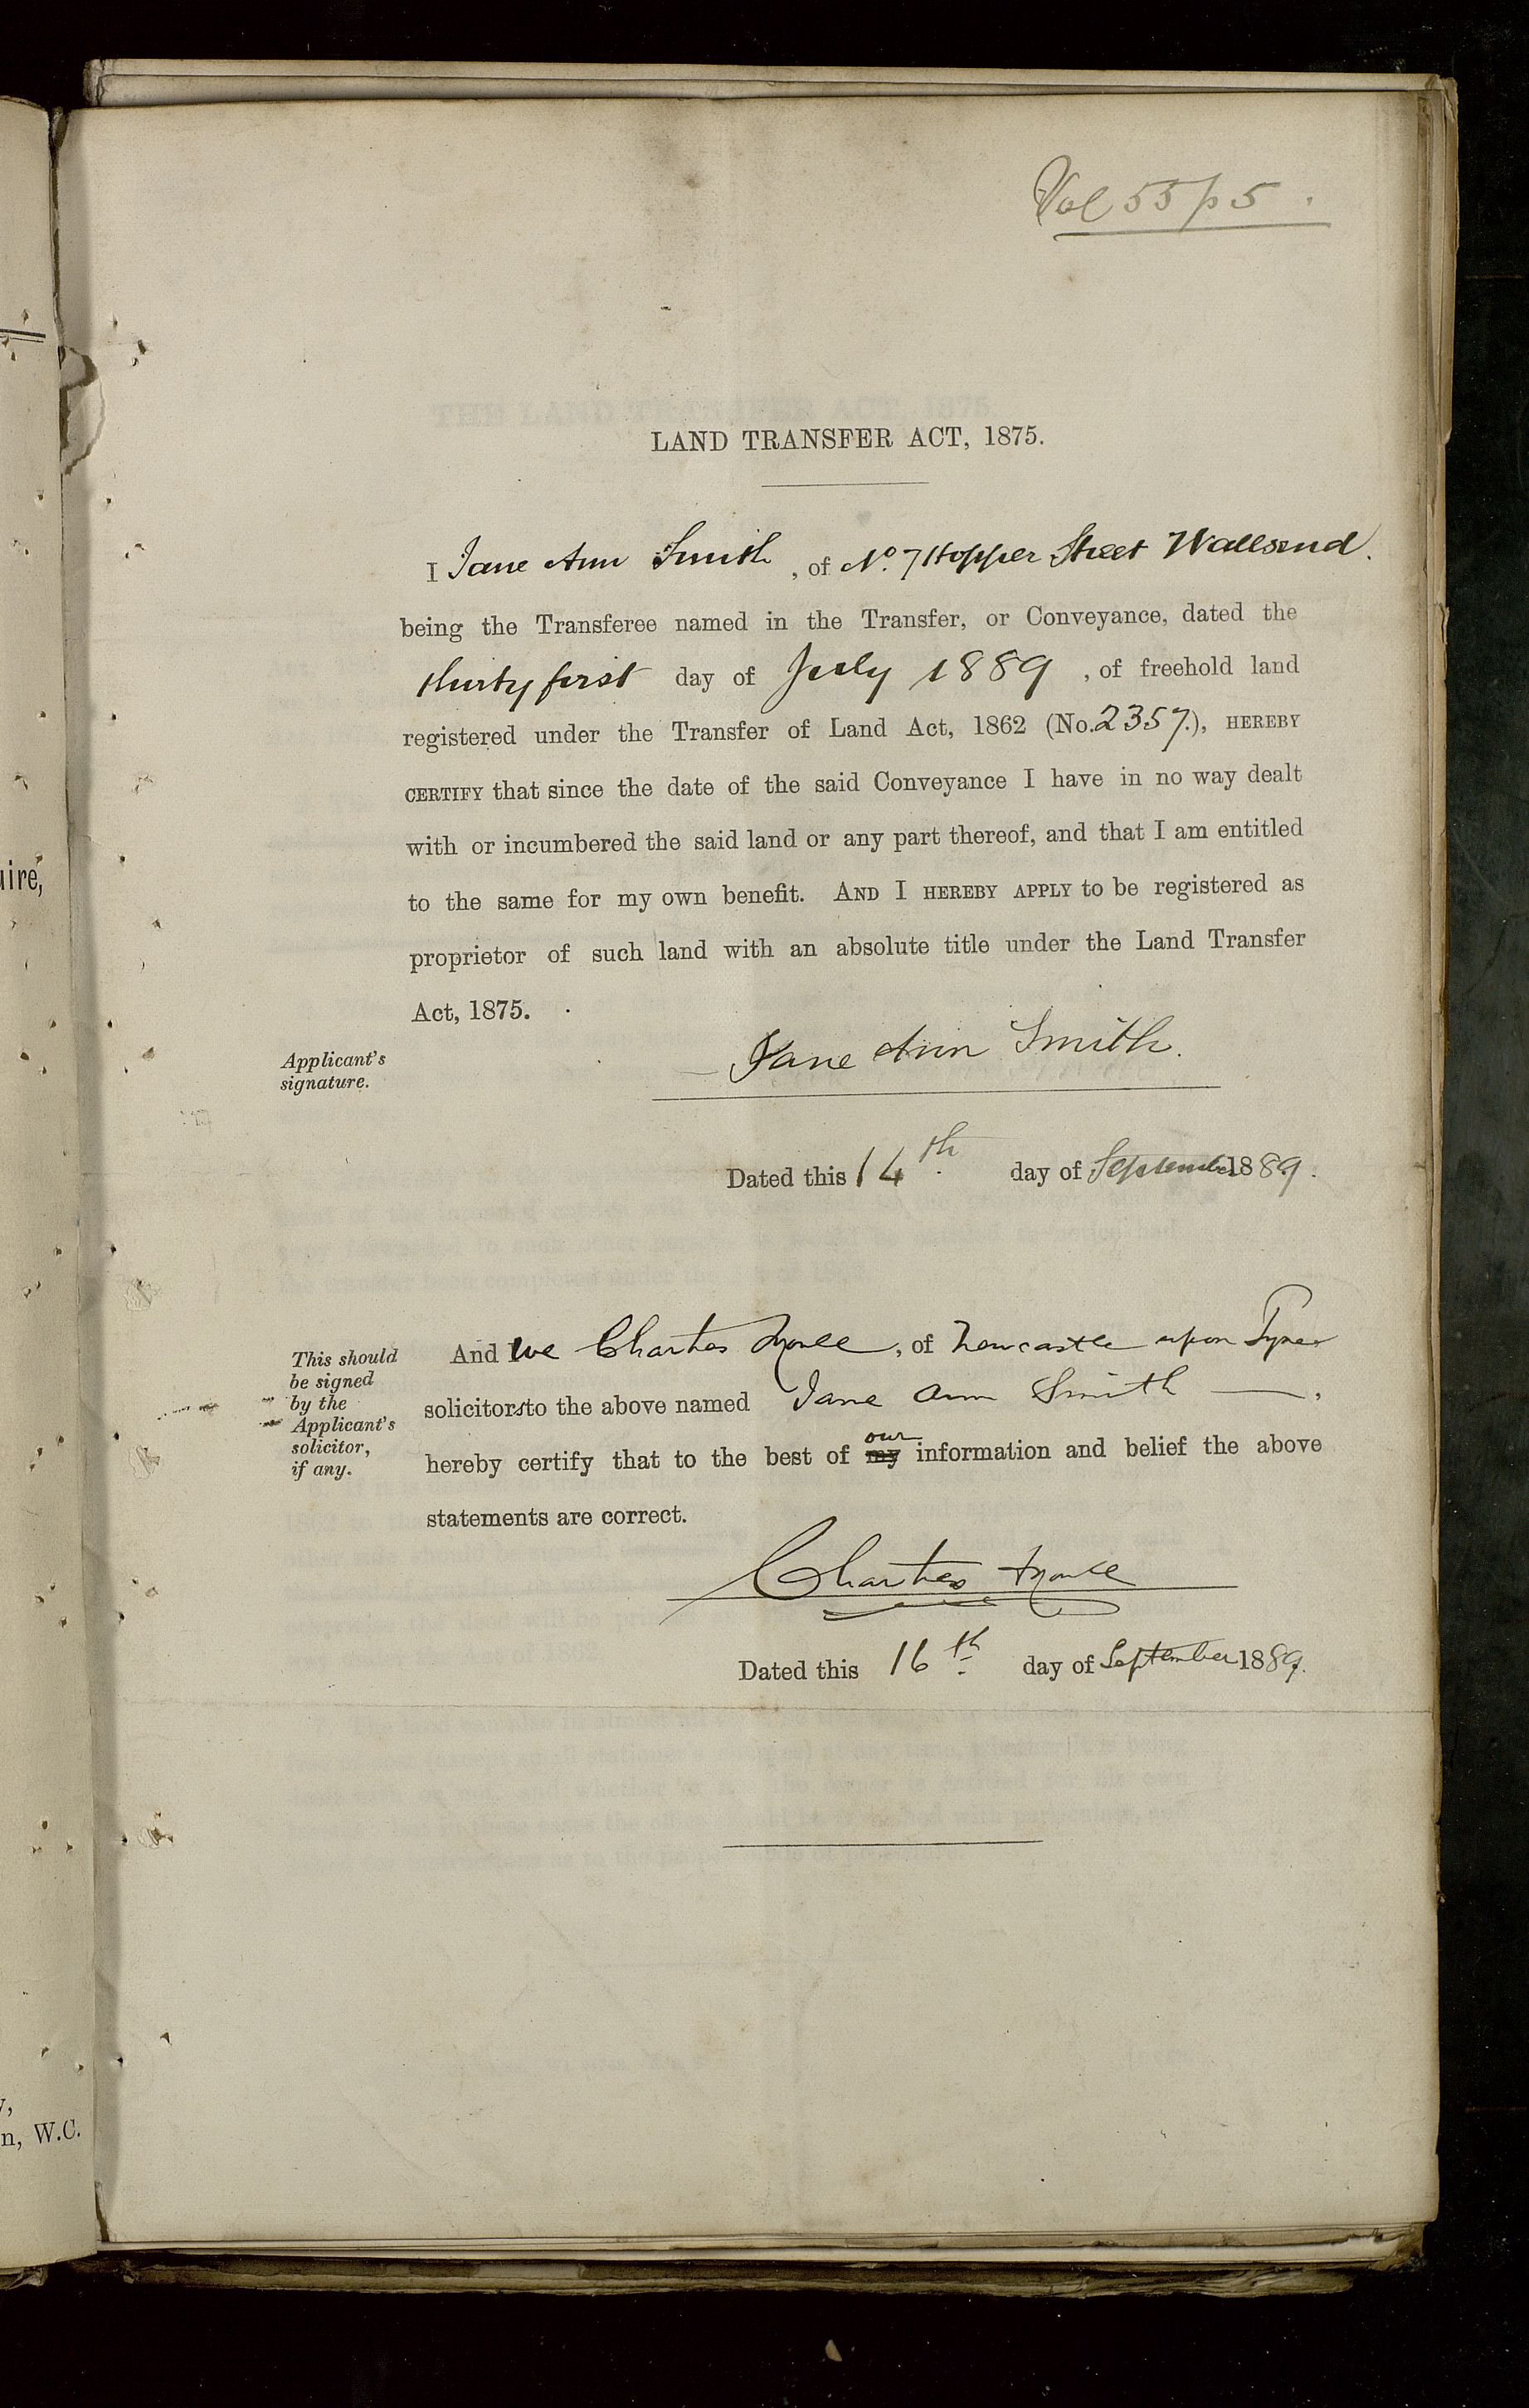 Vol 55 p 5.
LAND TRANSFER ACT, 1875.
I Jane Ann Smith, of No. 7 Hopper Street Wallsend.
being the Transferee named in the Transfer, or Conveyance, dated the
thirty first day of July 1889, of freehold land
registered under the Transfer of Land Act, 1862 (No. 2357.), HEREBY
CERTIFY that since the date of the said Conveyance I have in no way dealt
with or incumbered the said land or any part thereof, and that I am entitled
to the same for my own benefit. AND I HEREBY APPLY to be registered as
proprietor of such land with an absolute title under the Land Transfer
Act, 1875.
Applicant's
signature.
Jane Ann Smith.
Dated this 14th day of September 1889.
This should
be signed
by the
Applicant's
solicitor,
if any.
And we, of Newcastle upon Tyne
solicitors to the above named Jane Ann Smith
our
hereby certify that to the best of my information and belief the above
statements are correct.
Dated this 16th day of September 1889.
uire,
n, W.C.